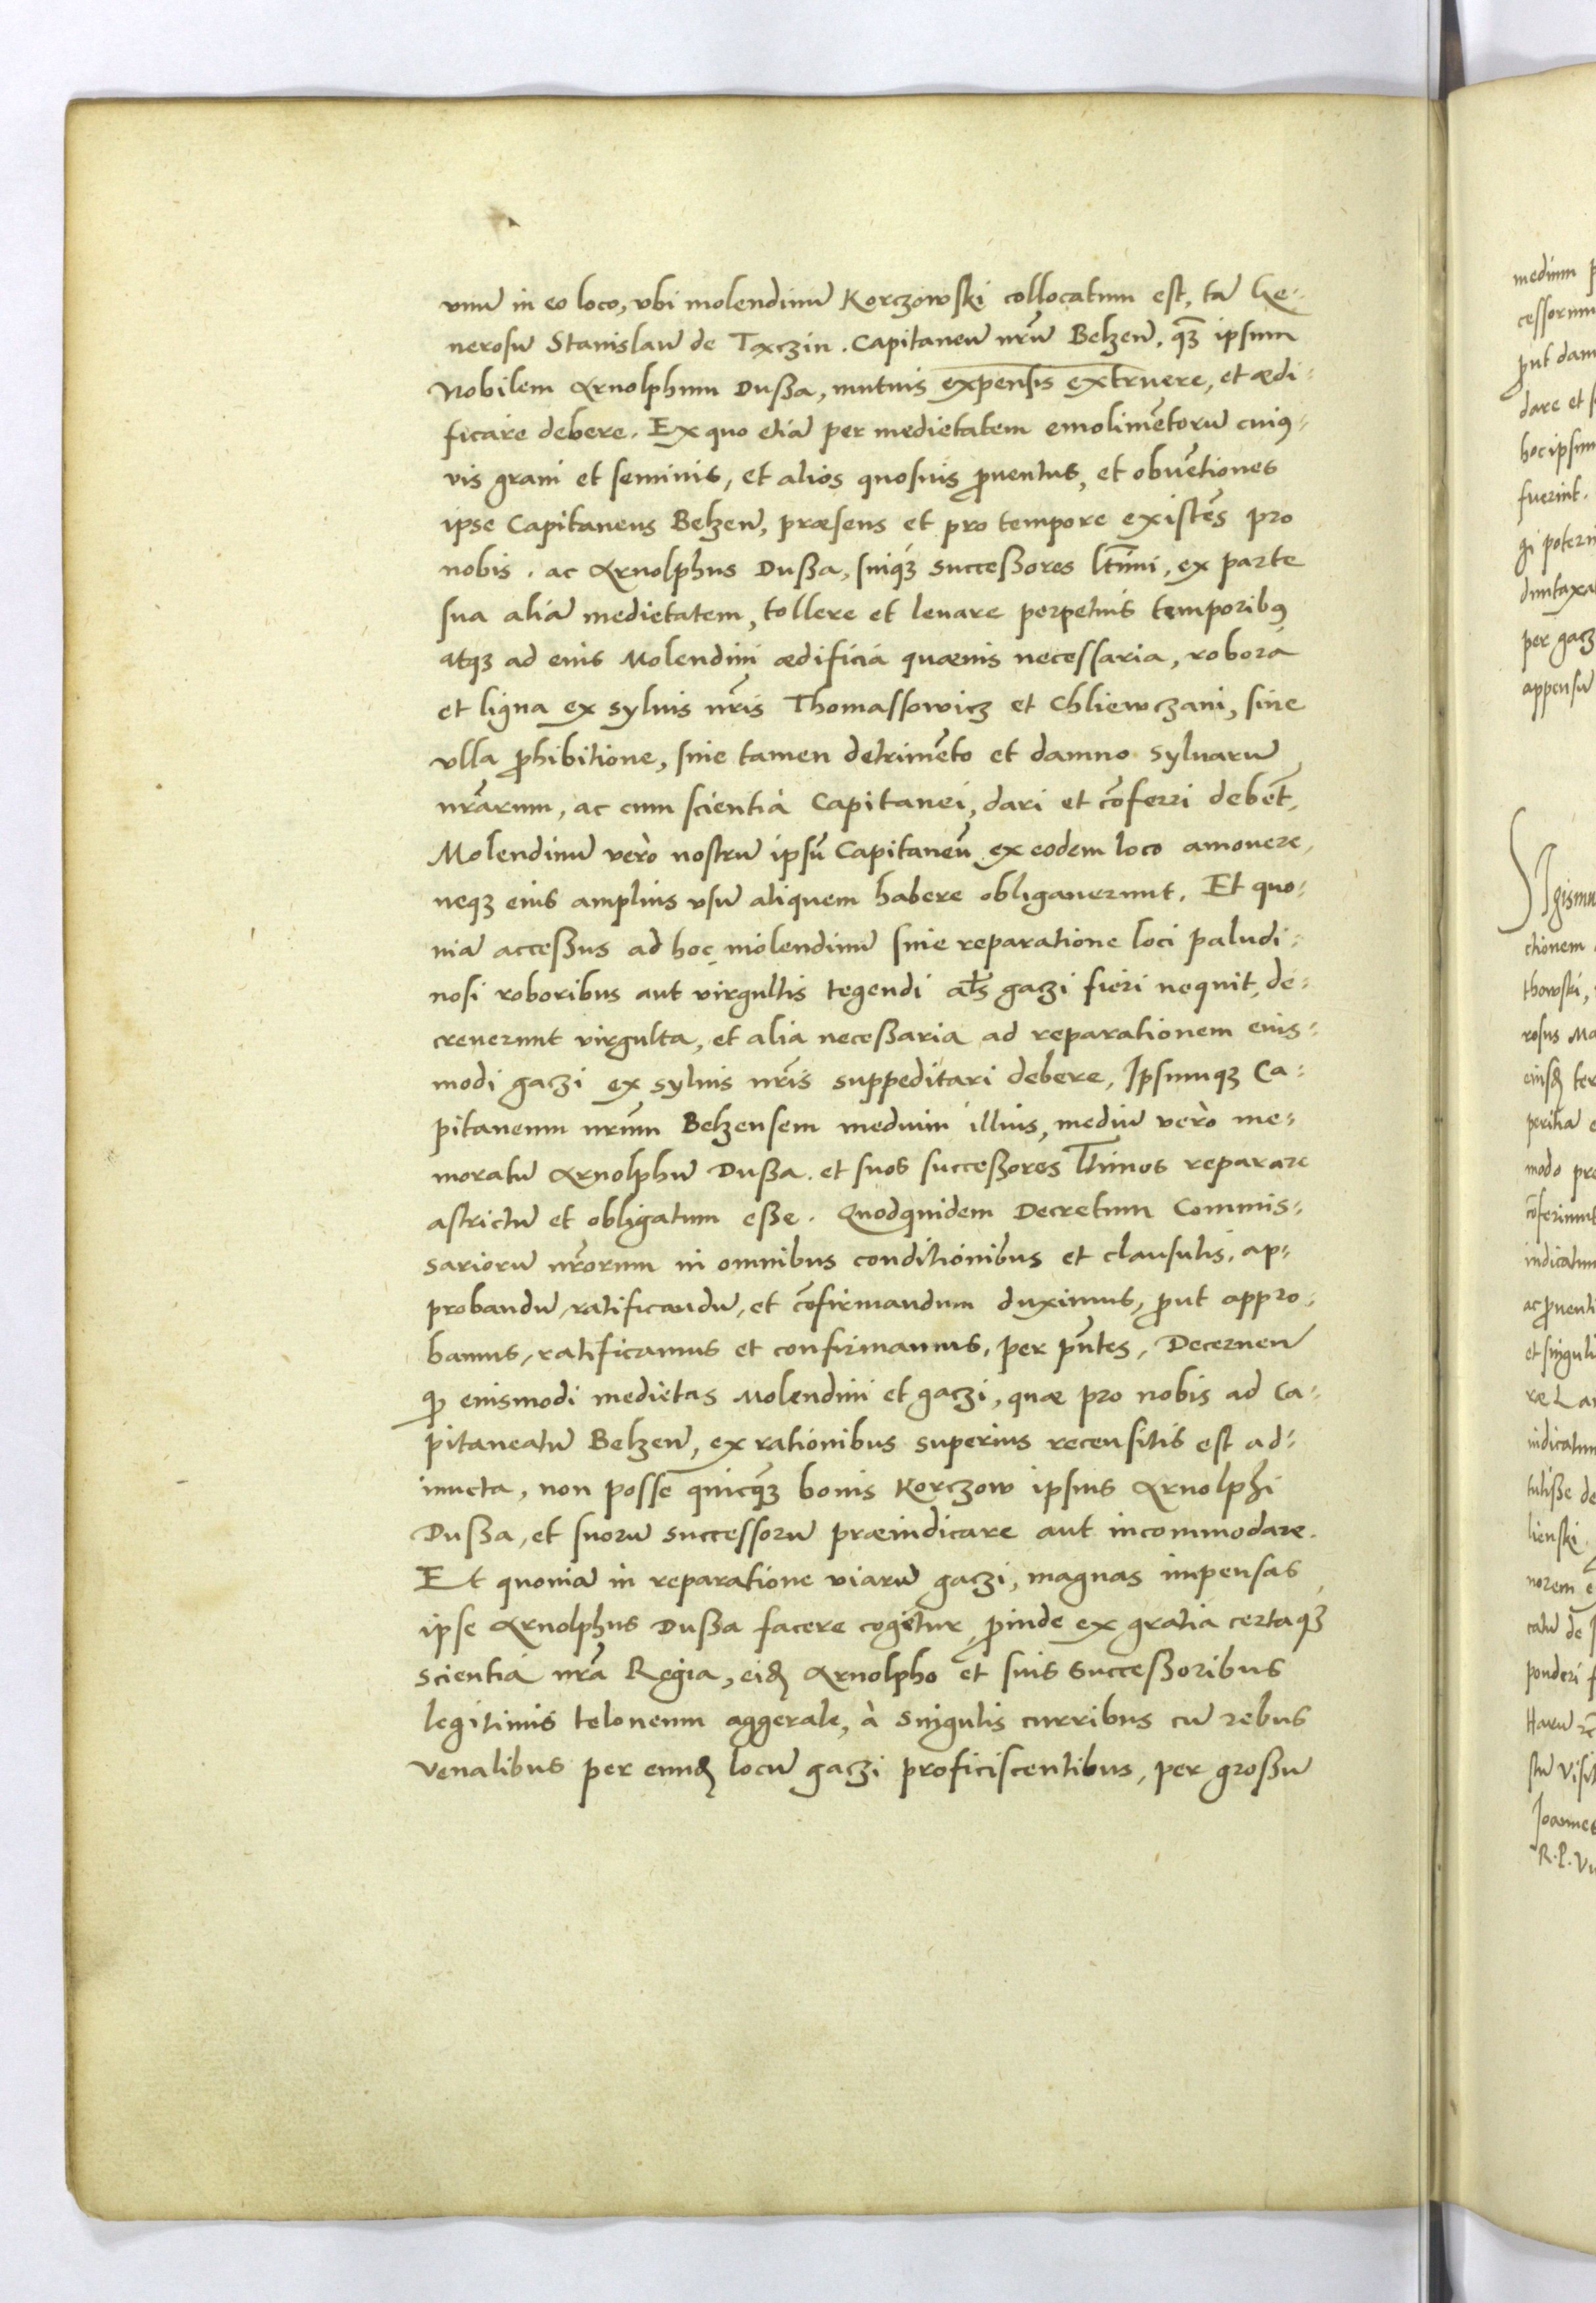 vnũ in eo loco, vbi molendinũ Korczowski collocatum est, tã Ge-
nerosũ Stanislaũ de Tęczin. Capitaneũ nrũm Belzeñ. q̃ꝫ ipsum
Nobilem Arnolphum Dußa, mutuis expensis extruere, et ædi-
ficare debere. Ex quo etiã per medietatem emolimẽtorũ cuiꝰ-
vis grani et seminis, et alios quosuis ꝓuentus, et obuẽtiones
ipse Capitaneus Belzeñ, præsens et pro tempore existẽs pro
nobis. ac Arnolphus Dußa, suiqꝫ succeßores ltĩmi, ex parte
sua aliã medietatem, tollere et leuare perpetuis temporibꝰ
atqꝫ ad eius Molendini ædificia quæuis necessaria, robora
et ligna ex syluis nr̃is Thomassowicz et Chliewczani, sine
vlla ꝓhibitione, sine tamen detrimẽto et damno syluarũ
nrãrum, ac cum scientia Capitanei, dari et cõferri debẽt,
Molendinũ verò nostrũ ipsũ Capitaneũ ex eodem loco amouere,
neqꝫ eius amplius vsũ aliquem habere obligauerunt. Et quo-
niã acceßus ad hoc molendinũ sine reparatione loci paludi-
nosi roboribus aut virgultis tegendi al̃s gaczi fieri nequit, de-
creuerunt virgulta, et alia neceßaria ad reparationem eius-
modi gaczi ex syluis nr̃is suppeditari debere, Ipsumqꝫ Ca-
pitaneum nrũm Belzensem medium illius, mediũ verò me-
moratũ Arnolphũ Dußa. et suos succeßores ltĩmos reparare
astrictũ et obligatum eße. Quodquidem Decretum Commis-
sariorũ nrõrum in omnibus conditionibus et clausulis, ap-
probandũ, ratificandũ, et cõfirmandum duximus, ꝓut appro-
bamus, ratificamus et confirmamus, per pñtes, Decerneñ
qꝫ eiusmodi medietas Molendini et gaczi, quæ pro nobis ad Ca-
pitaneatũ Belzeñ, ex rationibus superius recensitis est ad-
iuncta, non posse quicq̃ꝫ bonis Korczow ipsius Arnolphi
Dußa, et suorũ successorũ præiudicare aut incommodare.
Et quoniã in reparatione viarũ gaczi, magnas impensas
ipse Arnolphus Dußa facere cogitur, ꝓinde ex gratia certaqꝫ
scientia nrã Regia, eidꝫ Arnolpho et suis succeßoribus
legitimis teloneum aggerale, à singulis curribus cũ rebus
venalibus per eundꝫ locũ gaczi proficiscentibus, per großũ